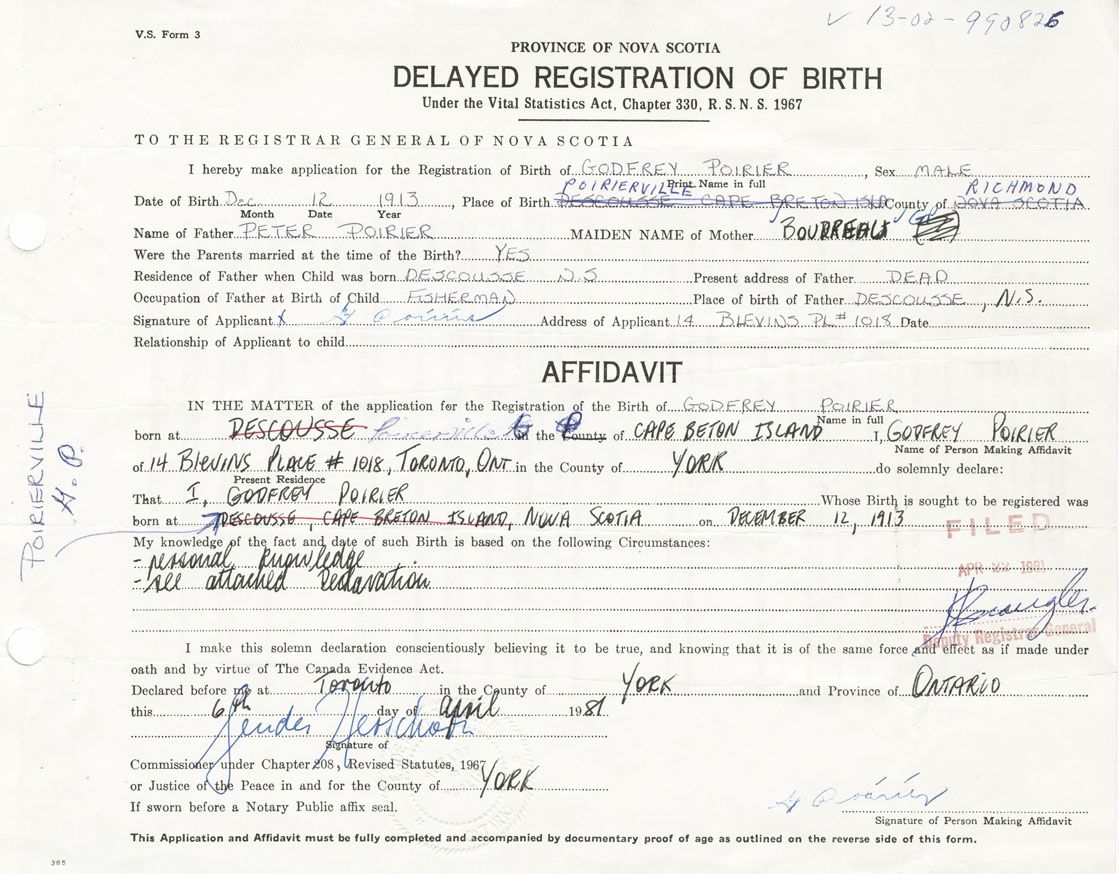 V 13-02-990826
V.S. Form 3
PROVINCE OF NOVA SCOTIA
DELAYED REGISTRATION OF BIRTH
Under the Vital Statistics Act, Chapter 330, R. S. N. S. 1967
TO THE REGISTRAR GENERAL OF NOVA SCOTIA
I hereby make application for the Registration of Birth of GODFREY POIRIER, Sex MALE
POIRIERVILLE Print Name in full RICHMOND
Date of Birth Dec 12 1913, Place of Birth DESCOUSSE CAPE BRETON ISLD County of NOVA SCOTIA
Month Date Year
Name of Father PETER POIRIER MAIDEN NAME of Mother BOUDREAU
Were the Parents married at the time of the Birth? YES
Residence of Father when Child was born DESCOUSSE N.S Present address of Father DEAD
Occupation of Father at Birth of Child FISHERMAN Place of birth of Father DESCOUSSE, N.S.
Signature of Applicant X G Poirier Address of Applicant 14 BLEVINS PL # 1018 Date
Relationship of Applicant to child
AFFIDAVIT
IN THE MATTER of the application for the Registration of the Birth of GODFREY POIRIER
Name in full
born at DESCOUSSE Poirierville in the County of CAPE BETON ISLAND I, GODFREY POIRIER
Name of Person Making Affidavit
of 14 BLEVINS PLACE # 1018, TORONTO, ONT in the County of YORK do solemnly declare:
Present Residence
That I, GODFREY POIRIER Whose Birth is sought to be registered was
born at DESCOUSSE, CAPE BRETON ISLAND, NOVA SCOTIA on DECEMBER 12, 1913
POIRIERVILLE
G. P.
FILED
My knowledge of the fact and date of such Birth is based on the following Circumstances:
- personal knowledge
APR 22 1981
- see attached Declaration
Deputy Registrar General
I make this solemn declaration conscientiously believing it to be true, and knowing that it is of the same force and effect as if made under
oath and by virtue of The Canada Evidence Act.
Declared before me at Toronto in the County of YORK and Province of ONTARIO
this 6th day of April 1981
Signature of
Commissioner under Chapter 208, Revised Statutes, 1967
or Justice of the Peace in and for the County of YORK
If sworn before a Notary Public affix seal.
G Poirier
Signature of Person Making Affidavit
This Application and Affidavit must be fully completed and accompanied by documentary proof of age as outlined on the reverse side of this form.
385